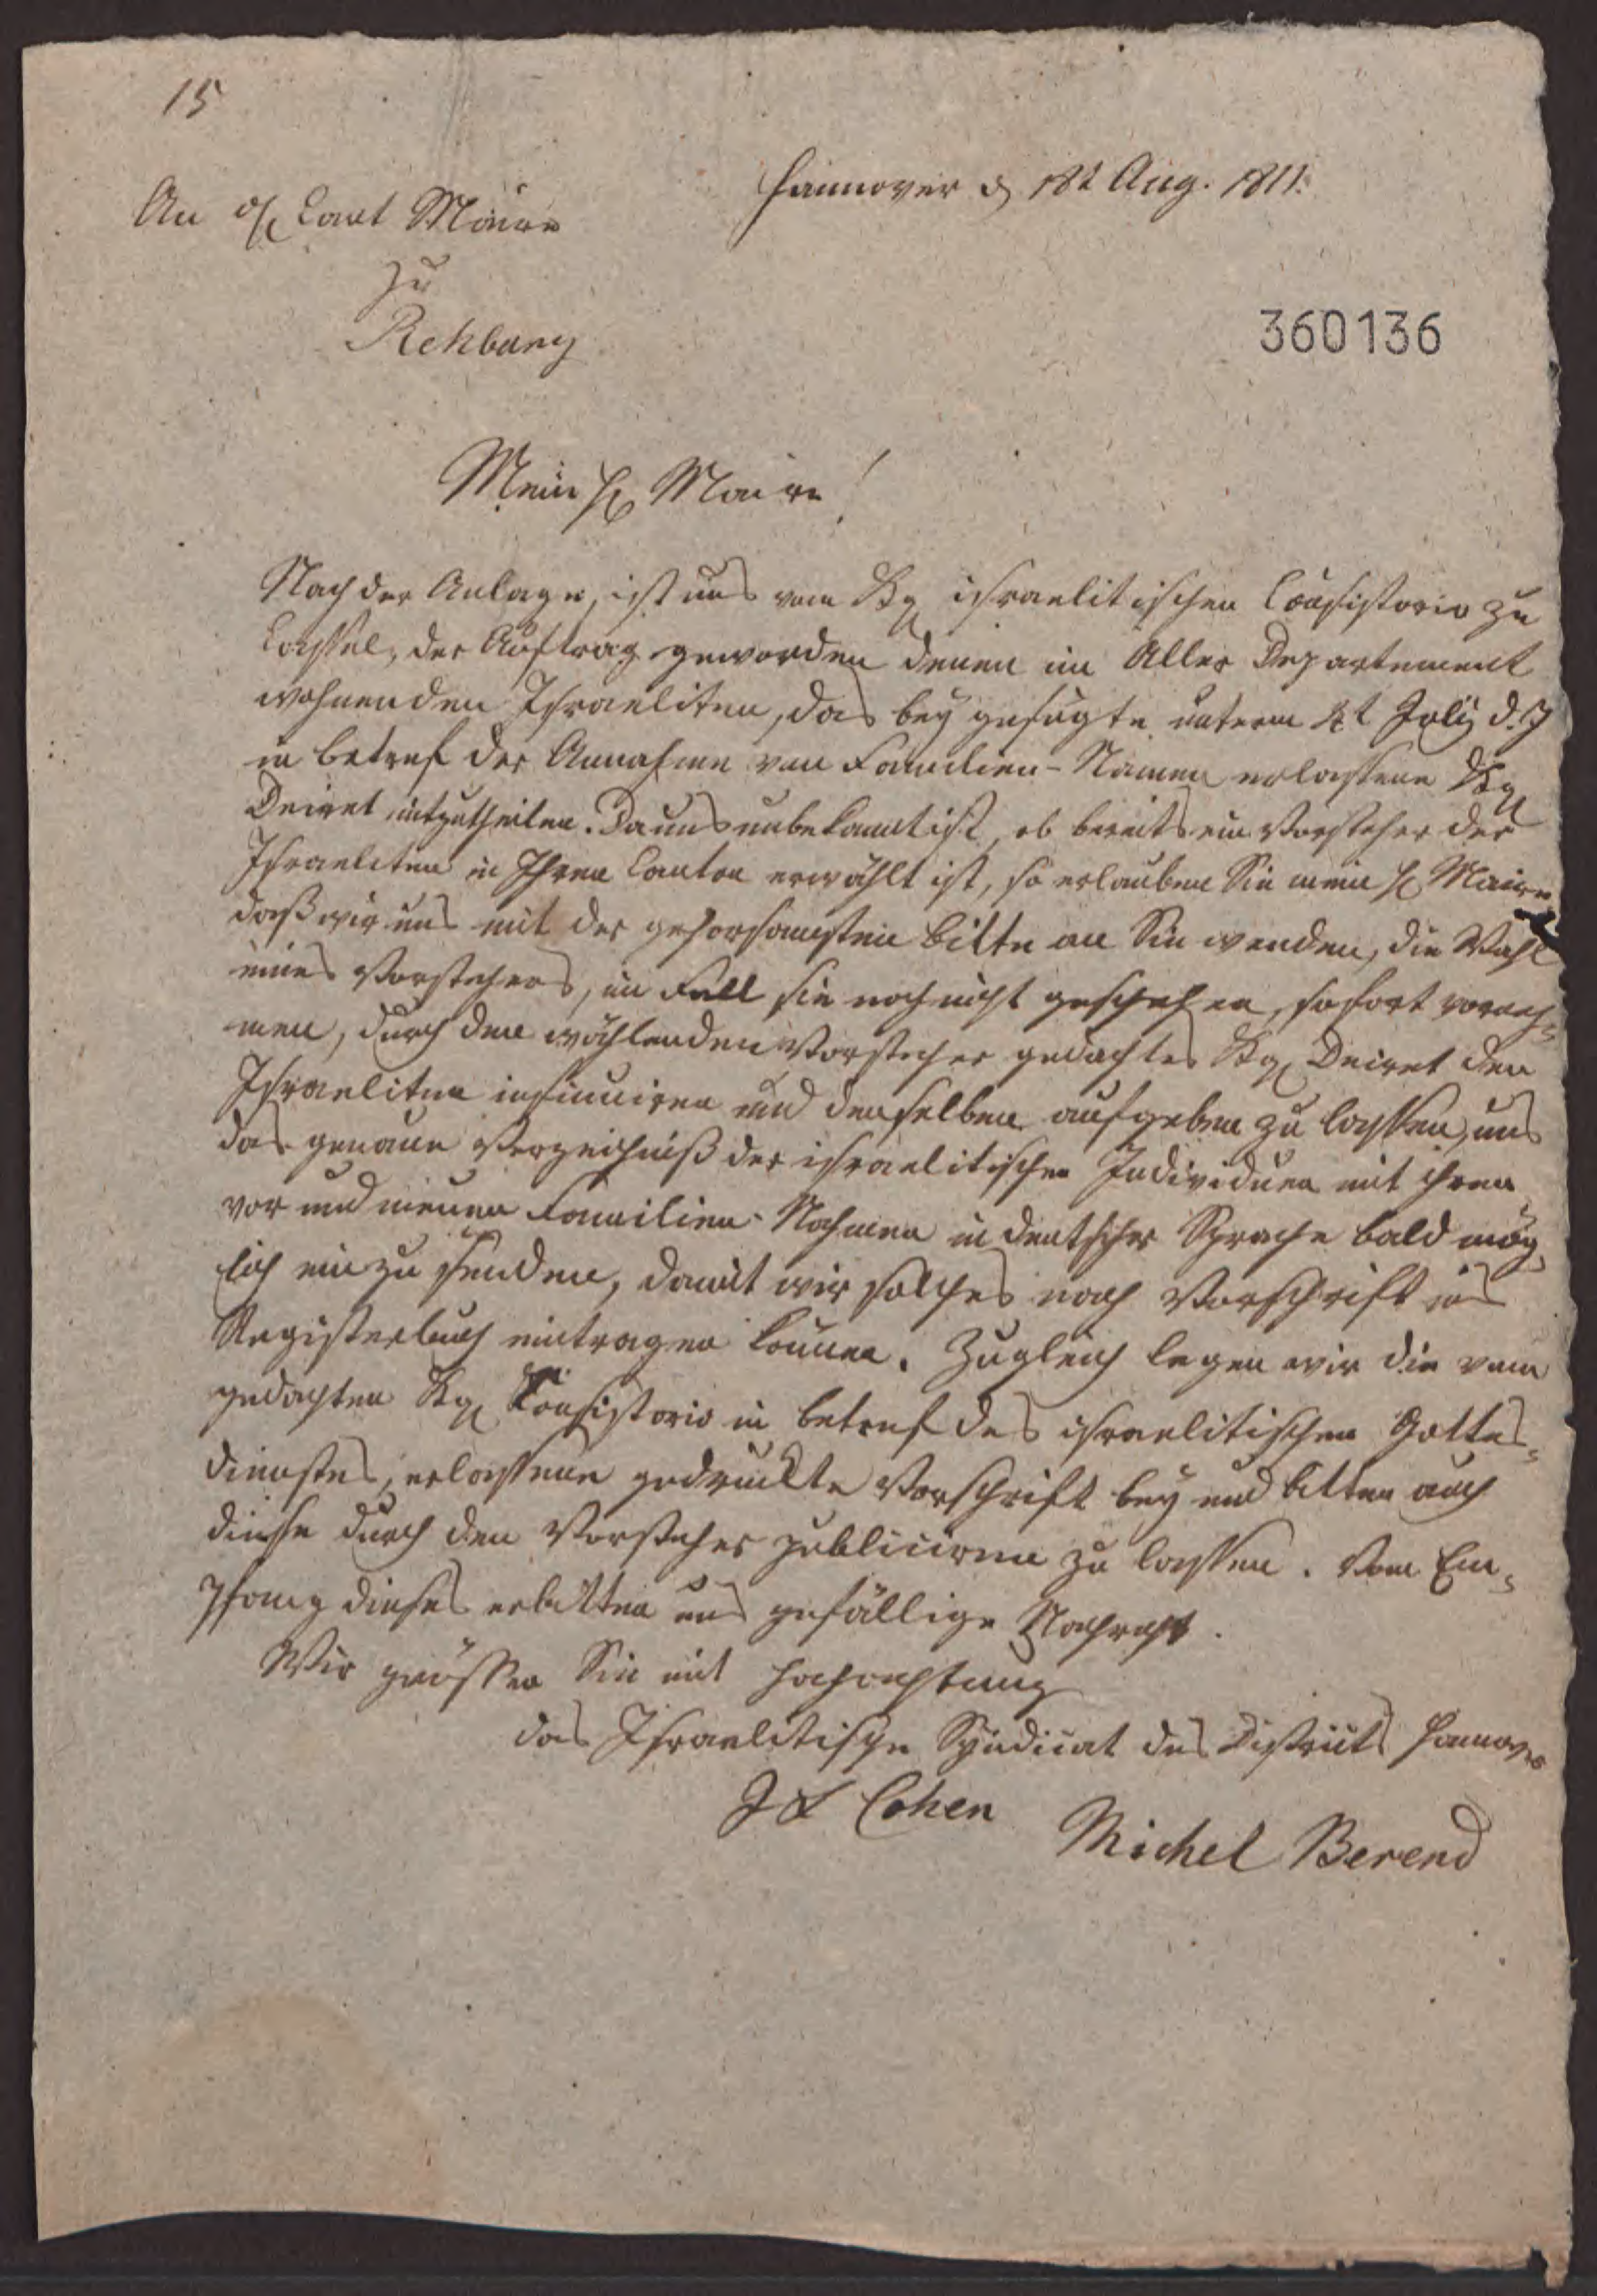 15
Hannover d 18t Aug. 1811.
An H Cant Maire
zu
Rehburg
360136
Mein H Maire!
Nach der Anlage, ist uns vom Kg israelitischen Consistorio zu
Cassel, der Auftrag geworden denen im Aller Departement
wohnenden Israeliten, das bey gefügte unterm 4t July d. J
in betref der Annahme von Familien-Namen erlassene Kg
Decret mitzutheilen. Da uns unbekannt ist, ob bereits ein Vorsteher der
Israeliten in Ihren Canton erwählt ist, so erlauben Sie mein H Maire
daß wir uns mit der gehorsamsten bitte an Sie wenden, die Wahl
eines Vorstehers, im Fall sie noch nicht geschehen, sofort vorneh=
men, durch den wählenden Vorsteher gedachtes Kg Decret den
Israeliten insinuiren und denselben aufgeben zu lassen, uns
das genaue Verzeichniß der israelitischen Individuen mit ihren
vor und neuen Familien-Nahmen in deutscher Sprache bald mög=
lich ein zu senden, damit wir solches nach Vorschrift ins
Registerbuch eintragen können. Zugleich legen wir die vom
gedachten Kg Consistorio in betref des israelitischen Gottes=
dienstes, erlassene gedruckte Vorschrift bey und bitten auch
diese durch den Vorsteher publiciren zu lassen. Vom Em=
pfang dieses erbitten uns gefällige Nachricht.
Wir grüssen Sie mit Hochachtung
das Israelitische Syndicat des Districts Hannover
J L Cohen Michel Berend